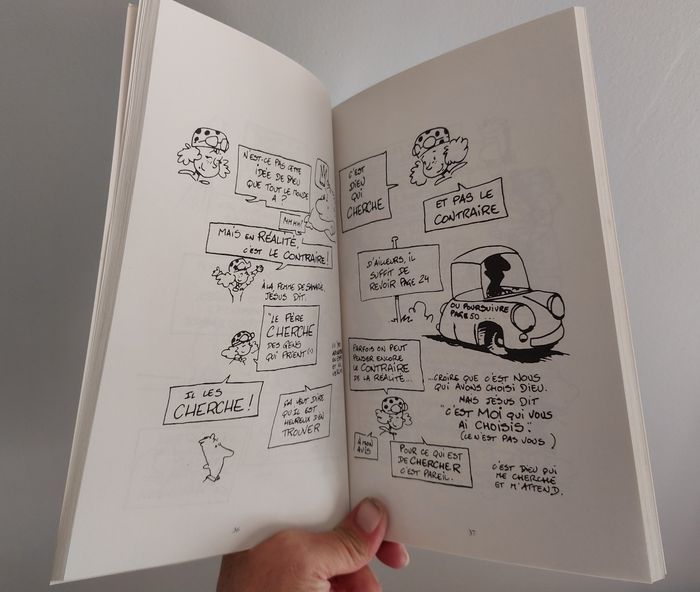 N'EST-CE PAS CETTE
IDÉE DE DIEU
QUE TOUT LE MONDE
A ?
MHHH!
MAIS EN RÉALITÉ,
C'EST LE CONTRAIRE !
À LA FEMME DE SAMARIE,
JÉSUS DIT.
"LE PÈRE
CHERCHE
DES GENS
QUI PRIENT(1)
IL LES
CHERCHE !
ÇA VEUT DIRE
QU'IL EST
HEUREUX D'EN
TROUVER
36
C'EST
DIEU
QUI
CHERCHE
ET PAS LE
CONTRAIRE
D'AILLEURS, IL
SUFFIT DE
REVOIR PAGE 24
OU POURSUIVRE
PAGE 50...
PARFOIS ON PEUT
PENSER ENCORE
LE CONTRAIRE
DE LA RÉALITÉ...
...CROIRE QUE C'EST NOUS
QUI AVONS CHOISI DIEU.
MAIS JÉSUS DIT
"C'EST MOI QUI VOUS
AI CHOISIS".
(CE N'EST PAS VOUS)
À MON
AVIS
POUR CE QUI EST
DE CHERCHER
C'EST PAREIL.
C'EST DIEU QUI
ME CHERCHE
ET M'ATTEND.
37